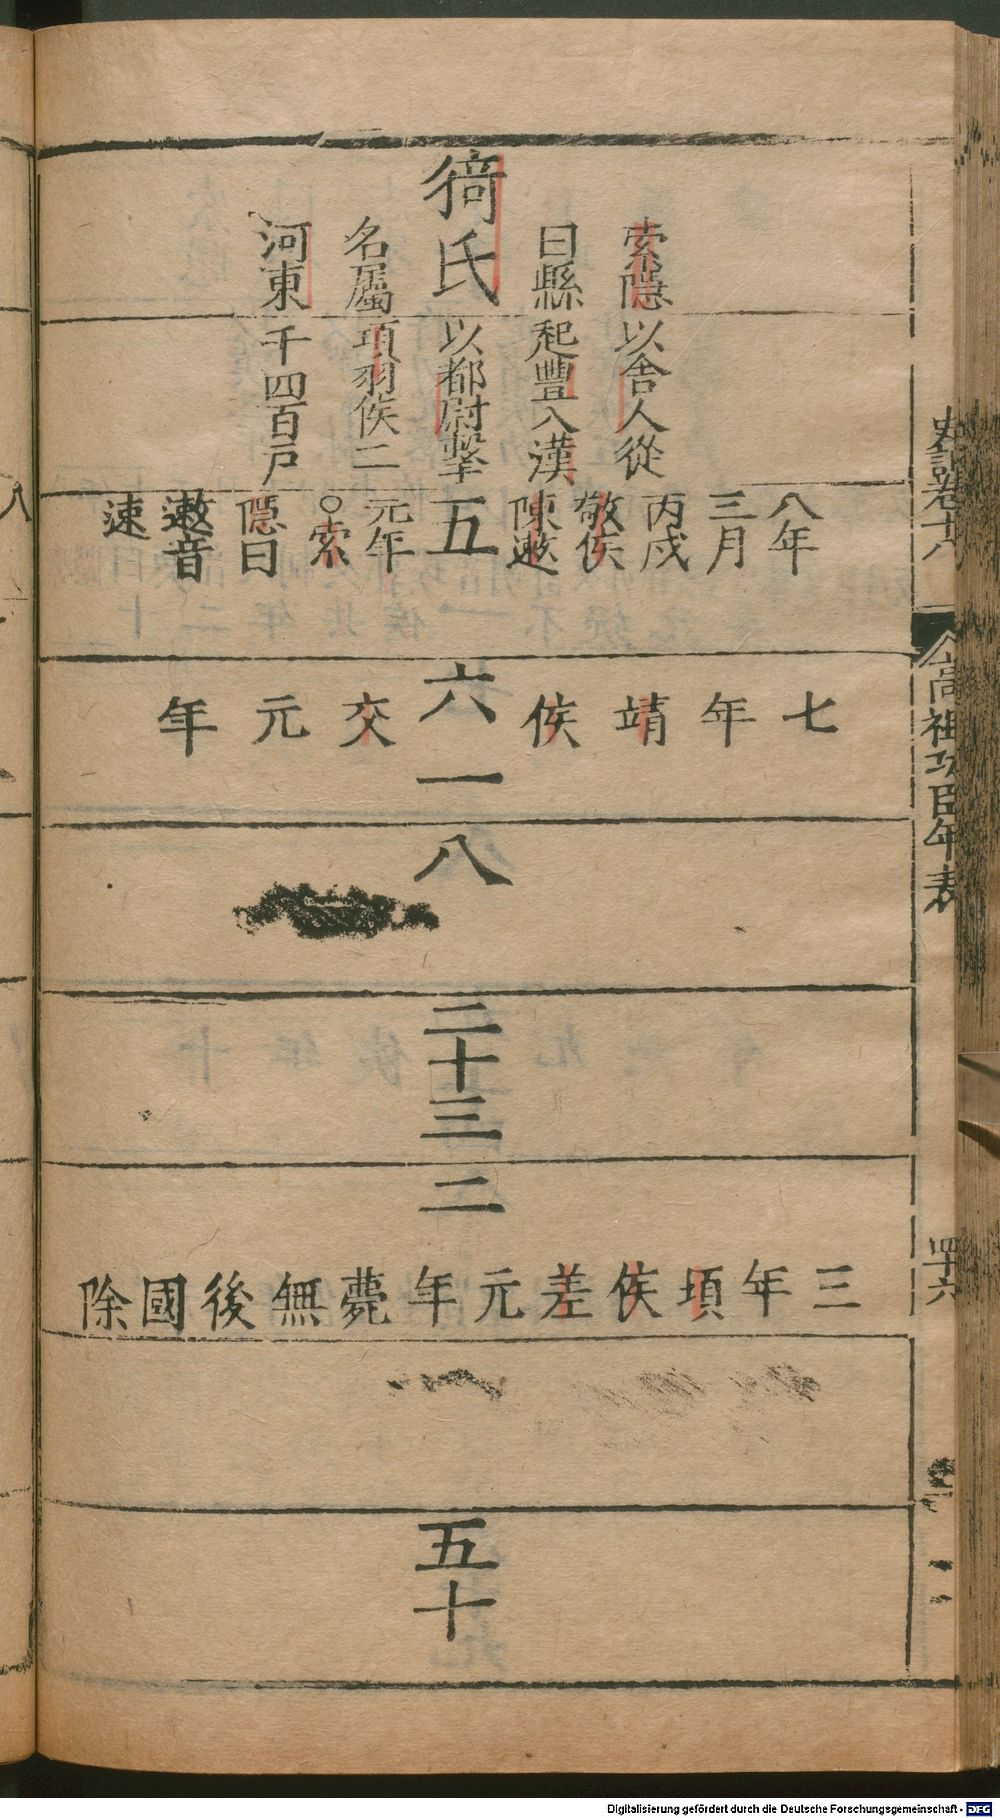 猗氏
索隱
曰縣
名屬
河東
以舍人從
起豐入漢
以都尉擊
項羽侯二
千四百戶
五
八年
三月
丙戌
敬侯
陳遬
元年
○索
隱曰
遬音
速
六
七年靖侯交元年
一
八
二十三
二
三年頃侯差元年薨無後國除
五十
史記卷十八
高祖功臣年表
四十六
八
Digitalisierung gefördert durch die Deutsche Forschungsgemeinschaft - DFG